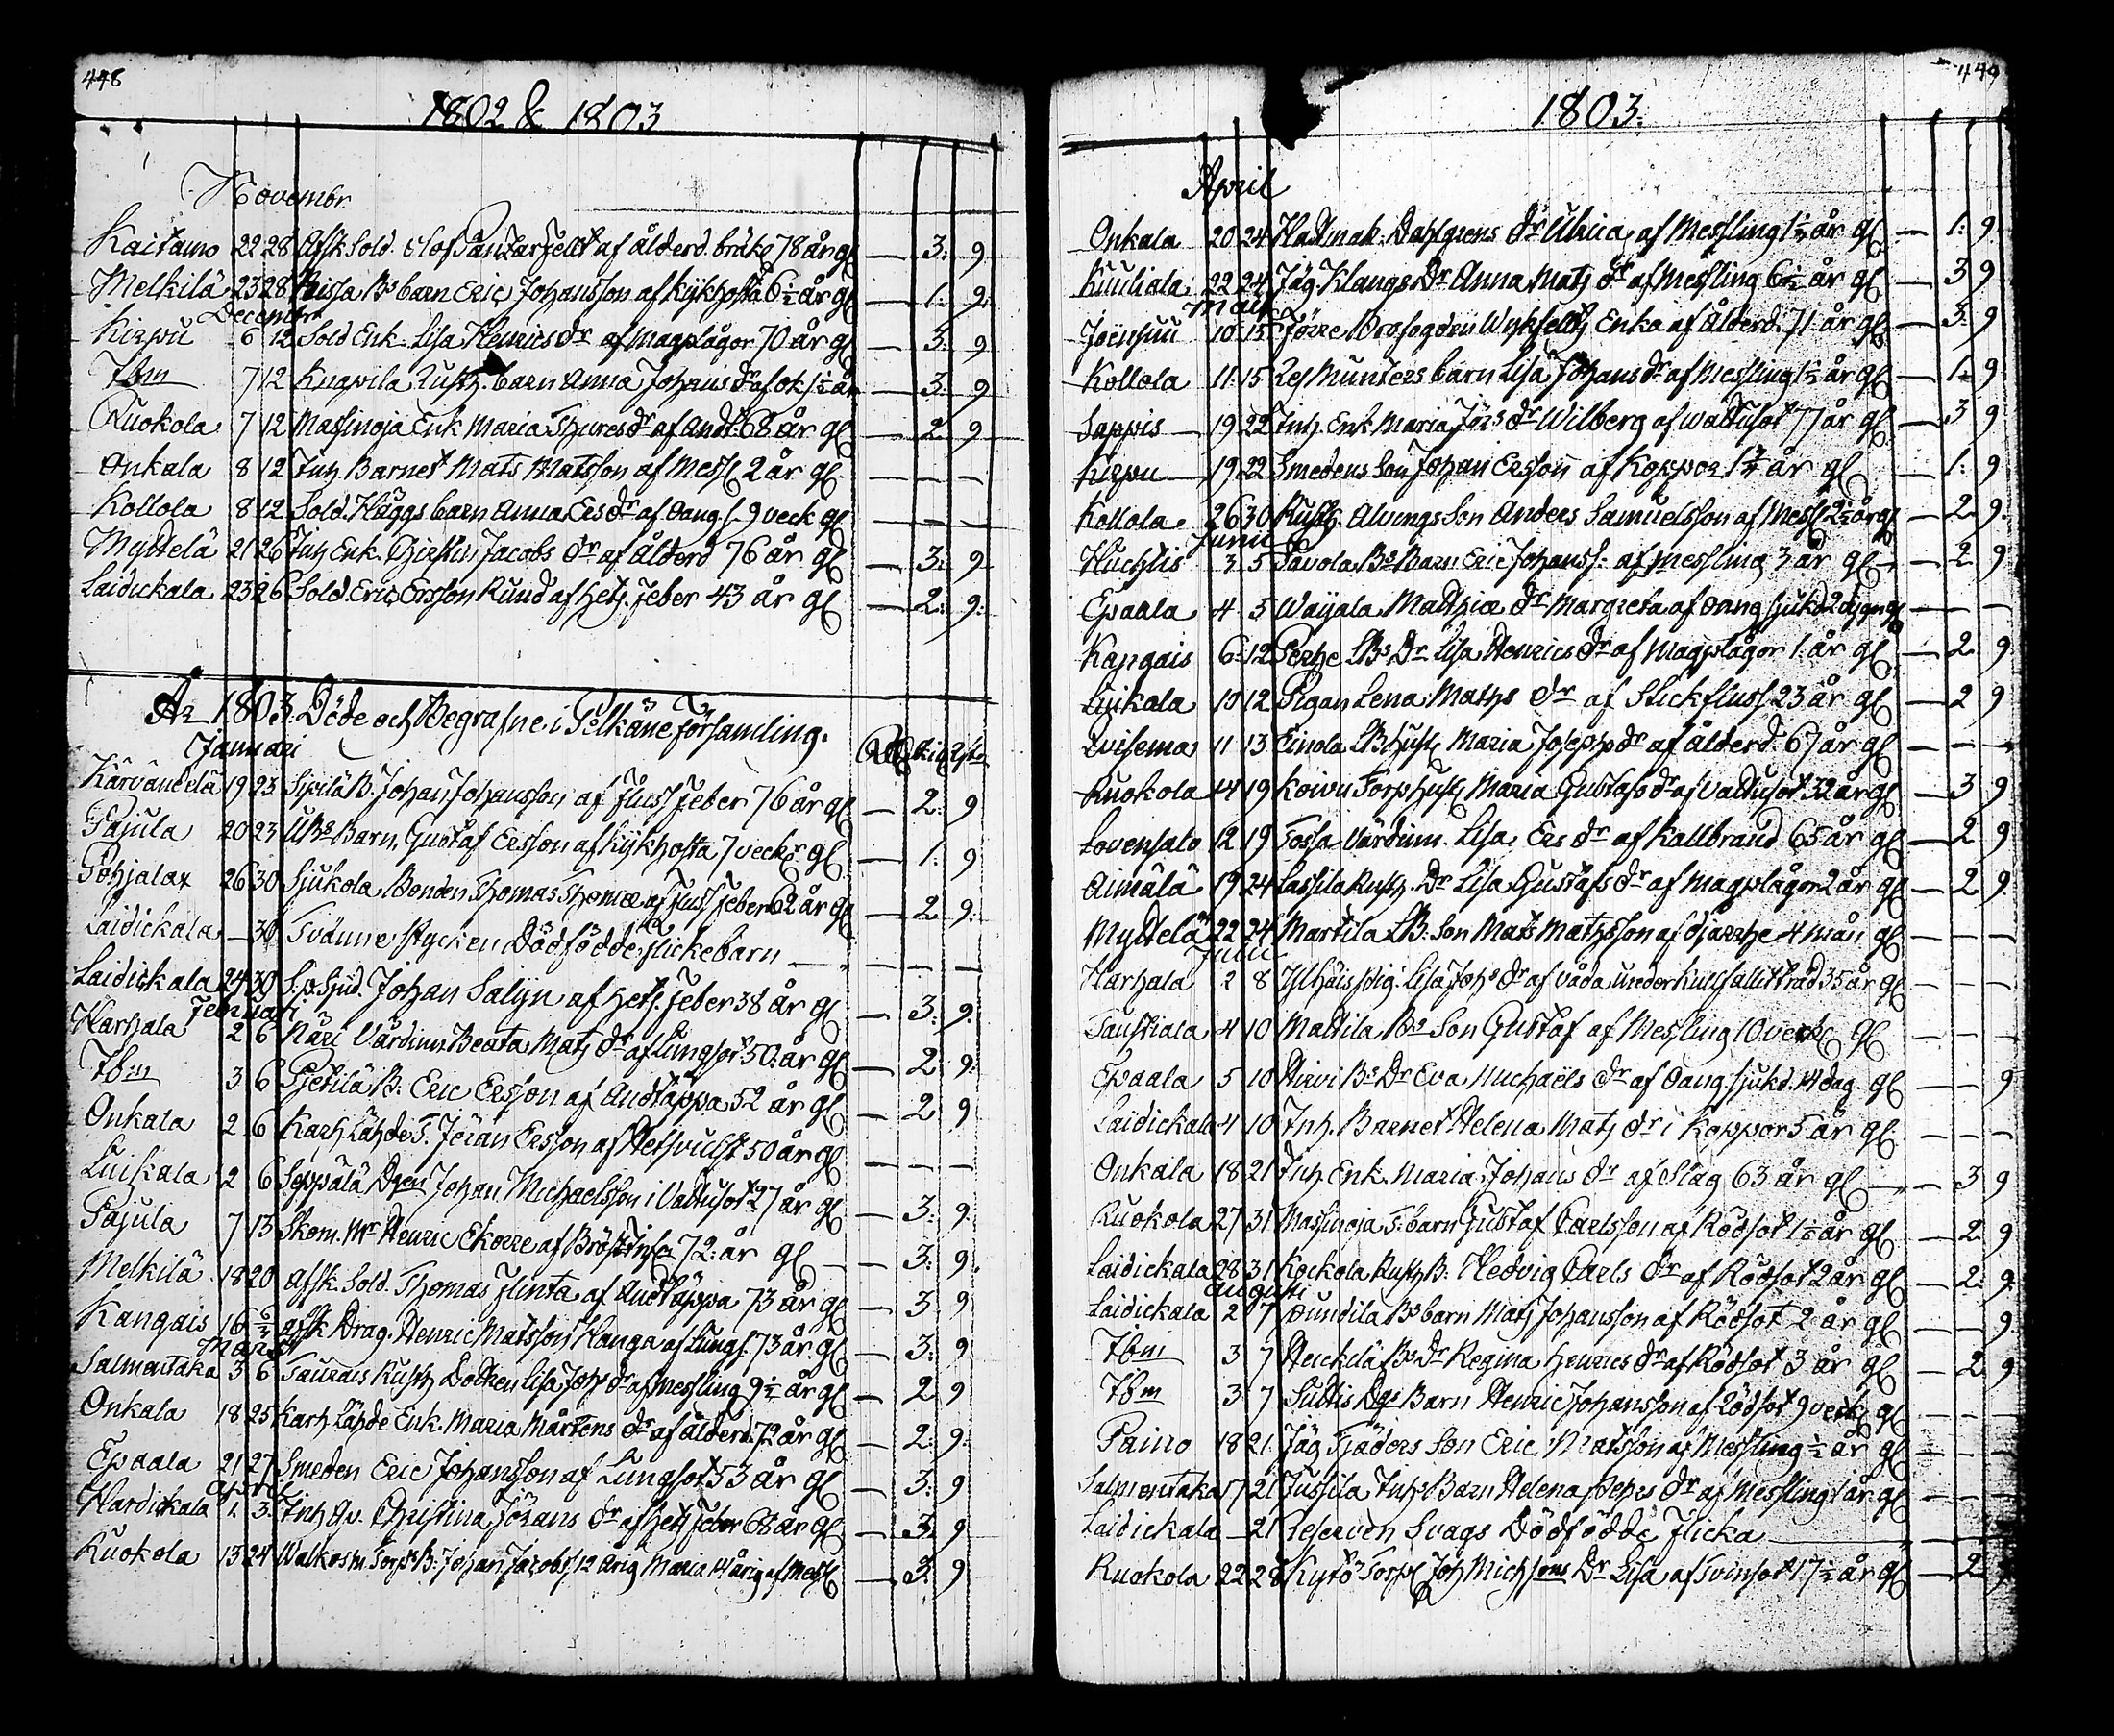 448
1802 & 1803
Novembr
Kaitamo 22 28 Afsk Sold. Olof af ålderd. bräk 78 år gl — 3: 9
Melkilä 23 28 Rissa Bs barn Eric Johansson af Kijkhosta 6½ år gl — 1: 9
Decembr
Kirpu 6 12 Sold Enk. Lisa Henrics dr af Magplågor 70 år gl — 3: 9
Ibm 7 12 Rusth. barn Anna Johans dr af ok 1½ år — 3: 9
Ruokola 7 12 Massinoja Enk Maria Thures dr af Andt. 68 år gl — 2 9
Onkala 8 12 Inh Barnet Mats Matsson af Messl 2 år gl — — —
Kollola 8 12 Sold. Häggs barn Anna Ers dr af Oang s. 9 veck gl — — —
Myttelä 21 26 Inh Enk. Jacobs dr af Ålderd 76 år gl — 3: 9
Laidickala 23 26 Sold. Eric Ersson Rund af Hetz. feber 43 år gl — 2: 9:
År 1803. Döde och Begrafne i Pelkäne församling.
Januari
Kärväntelä 19 23 Sipilä B. Johan Johansson af fluss feber 76 år gl — 2: 9
Pajula 20 23 Barn Gustaf Ersson af Kijkhosta 7 veckr gl — 1: 9
Pohjalax 26 30 Sjukola Bonden Thomas Thomæ af fluss feber 62 år gl — 2 9:
Laidickala — 30 Tvänne stycken Dödfödde flickebarn — — — —
Laidickala 24 30 Johan Salijn af hetz. feber 38 år gl — 3: 9:
Februari
Harhala 2 6 Näri Värdinn Beata Mats dr af Lungsot 50 år gl — 2: 9:
Ibm 3 6 Pjetilä B: Eric Ersson af Andtäppa 52 år gl — 2 9
Onkala 2 6 Karh Lähde T. Jöran Ersson af Hetsvulst 50 år gl — — —
Luikala 2 6 Seppälä Dgen Johan Michaelsson i Vattusot 27 år gl — 3: 9:
Pajula 7 13 Skom. Mr Henric Ekorre af Bröst Infl 72: år gl — 3: 9:
Melkilä 18 20 afsk. Sold. Thomas Flinta af Andtäppa 73 år gl — 3 9
Kangais 16 afsk Drag. Henric Matsson Kanga af Lungs. 73 år gl — 3: 9
Mars
Salmentaka 3 6 Taurais Rusth Dotren Lisa Joh dr af Messling 9½ år gl — 2 9
Onkala 18 25 Karh Lähde Enk. Maria Mårtens dr af ålderd. 72 år gl — 2: 9:
Epaala 21 27 Smeden Eric Johansson af Lungsot 53 år gl — 3: 9
April
Hardickala 1. 3: Inh Qv. Christina Jörans dr af hetz feber 68 år gl — 3: 9
Ruokola 13 24 Torp B: Johan Jacobs 12 årig Maria 14 årig af Messl — 3 9
449
1803.
April
Onkala 20 24 Dahlgrens dr Ulrica af Messling 1½ år gl — 1: 9
Kuuliala 22 24 Jäg. Klangs Dr Anna Mats dr af Messling 6½ år gl — 3 9
Maii
Joensuu 10 15 Enka af Ålderd. 71 år gl — 3: 9
Kollola 11 15 Munters barn Lisa Johans dr af Messling 1½ år gl — 1: 9
Sappis 19 22 Inh. Enk Maria Jörs dr Wilberg af Wattusot 77 år gl — 3 9
Kirpu 19 22 Smedens Son Johan Ersson af Koppor 1¾ år gl — 1: 9
Kollola 26 30 Rusth. Alvings Son Anders Samuelsson af Messl 2½ år gl — 2 9.
Junii
Huchtis 3 5 Savola Bs Barn Eric Johanss: af Messling 3 år gl — 2 9
Epaala 4 5 Waijala Matthiæ dr Margreta af Oang sjukd 2 dygn gl — — —
Kangais 6 12 Perhe LBs Dr Lisa Henrics dr af Magplågor 1: år gl — 2 9
Luikala 10 12 Pigan Lena Maths dr af Stickfluss 23 år gl — 2 9
Evisema 11 13 Einola LB Hustr Maria Josephs dr af ålderd 67 år gl — — —
Ruokola 14 19 Koivu Torp Hustr Maria Gustafs dr af Vattusot 32 år gl — 3 9
Lovensalo 12 19 Tossa Värdinn. Lisa Ers dr af Kallbrand 65 år gl — 2 9
Aimälä 19 24 Lassila Rusth. Dr Lisa Gustafs dr af Magplågor 2 år gl — 2 9
Myttelä 22 24 Martila LB: Son Mats Mathsson af djarrhe 4 mån gl — — —
Julii
Harhala 2 8 pig. Lisa Johs dr af våda under kullfallit träd 35 år gl — — —
Taustiala 4 10 Mattila Bs Son Gustaf af Messling 10 veck gl — — —
Epaala 5 10 Hirvi Bs Dr Eva Michaëls dr af Oang. sjukd. 14 dag. gl — — 9
Laidickala 4 10 Inh. Barnet Helena Mats dr i Koppor 5 år gl — — —
Onkala 18 21 Inh Enk. Maria Johans dr af Slag 63 år gl — 3 9
Ruokola 27 31 Massinoja T: barn Gustaf Carlsson af Rödsot 1½ år gl — 2 9
Laidickala 28 31 Kockola Rusth B: Hedvig Carls dr af Rödsot 2 år gl — 2: 9:
Augusti
Laidickala 2 7 Pundila Bs barn Mats Johansson af Rödsot 2 år gl — — 9
Ibm 3 7 Heickilä Bs Dr Regina Henrics dr af Rödsot 3 år gl — 2 9
Ibm 3 7 Suttis Dgs Barn Henric Johansson af Rödsot 9 veck gl — — —
Paino 18 21 Jäg Tjäders Son Eric Matsson af Messling ½ år gl — — —
Salmentaka 17 21 Jussila Inhs Barn Helena Jsephs dr af Messling 1 år gl — — —
Laidickala — 21 Reserven Svags Dödfödde flicka — — —
Ruokola 22 28 Kytö Torp Joh Michsons Dr Lisa af Tvinsot 17½ år gl — 2